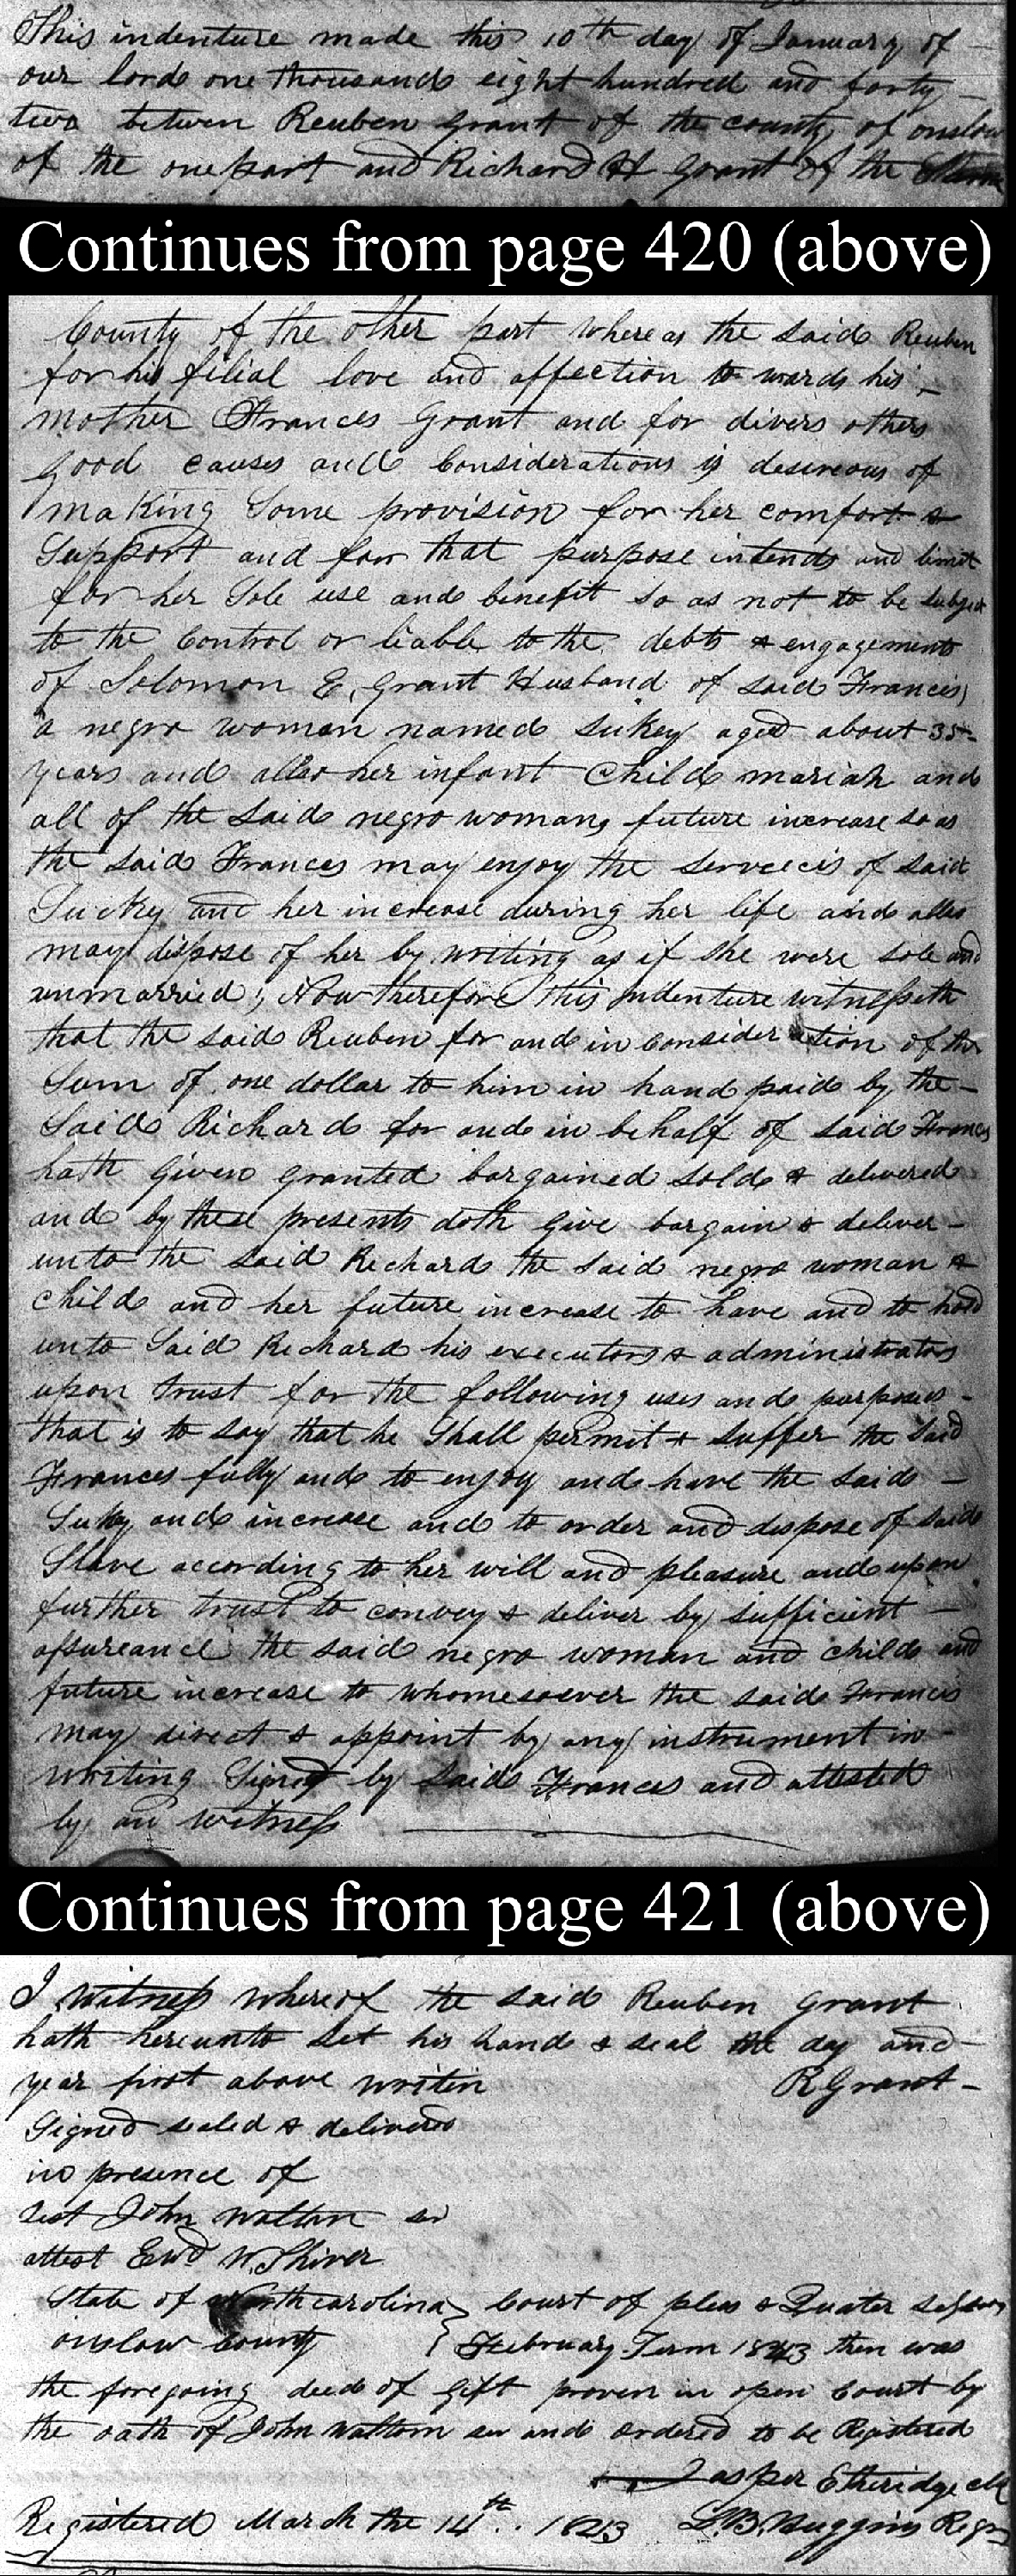 This indenture made this 10th day of January of
our lord one thousand eight hundred and forty
two betwen Reuben Grant of the county of onslow
of the one part and Richard H Grant of the
Continues from page 420 (above)
County of the other part whereas the said Reuben
for his filial love and affection to wards his
mother Frances Grant and for divers others
good causes and Considerations is desireous of
making Some provision for her comfort &
Support and for that purpose intends and limit
for her Sole use and benefit so as not to be subject
to the Control or liable to the debts & engagements
of Solomon E. Grant Husband of said Francis
a negro woman named Sukey aged about 35
years and allso her infant Child mariah and
all of the said negro womans future increase so as
the said Frances may enjoy the serveecis of said
Suckey and her increase during her life and allso
may dispose of her by writing as if she were sole and
unmarried; Now therefore this Indenture witnesseth
that the said Reuben for and in consideration of the
Sum of one dollar to him in hand paid by the
Said Richard for and in behalf of said Frances
hath Given granted bargained sold & delivered
and by these presents doth Give bargain & deliver
unto the said Richard the said negro woman &
child and her future increase to have and to hold
unto Said Richard his executors & administrators
upon trust for the following uses and purposes
that is to say that he Shall permit & suffer the said
Frances fully and to enjoy and have the said
Sukey and increase and to order and dispose of said
Slave according to her will and pleasure and upon
further trust to convey & deliver by sufficient
assureance the said negro woman and child and
future increase to whomesoever the said Francis
may direct & appoint by any instrument in
writing Signed by said Frances and attested
by an witness
Continues from page 421 (above)
I witness whereof the said Reuben Grant
hath hereunto set his hand & seal the day and
year first above writin R Grant
Signed sealed & delivered
in presence of
test John Walton ser
attest Ewd W. Shiver
State of North carolina } Court of pleas & Quater
onslow County } February Term 1843 then was
the foregoing deed of Gift proven in open Court by
the oath of John Waltom ser and ordered to be Registered
Jasper Etheridge clk
Registered March the 14th 1843 L.B. Huggins Regr